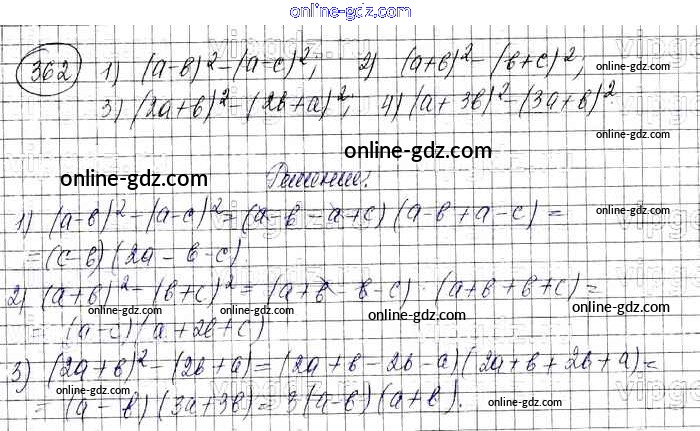 online-gdz.com
362 1) (a-b)²-(a-c)²; 2) (a+b)²-(b+c)²; online-gdz.com
3) (2a+b)²-(2b+a)²; 4) (a+3b)²-(3a+b)² online-gdz.com
online-gdz.com
online-gdz.com Решение.
1) (a-b)²-(a-c)²=(a-b-a+c)(a-b+a-c)= online-gdz.com
=(c-b)(2a-b-c) online-gdz.com
2) (a+b)²-(b+c)²=(a+b-b-c)·(a+b+b+c)=
=(a-c)(a+2b+c) online-gdz.com online-gdz.com online-gdz.com
3) (2a+b)²-(2b+a)=(2a+b-2b-a)(2a+b+2b+a)=
online-gdz.com online-gdz.com
=(a-b)(3a+3b)=3(a-b)(a+b). online-gdz.com
online-gdz.com